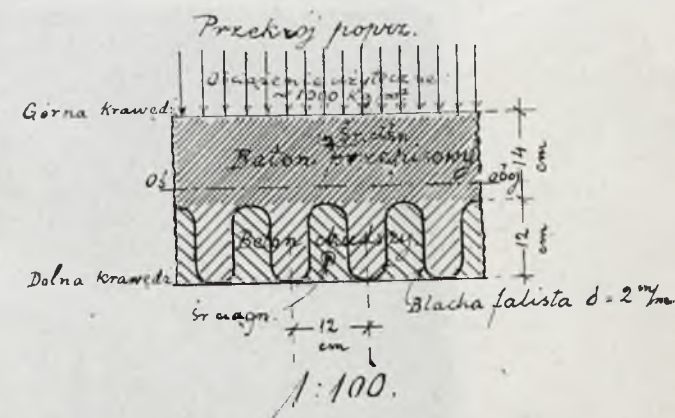 Przekrój poprz.
Obciążenie użyteczne
~ 1000 Kg/m²
Górna krawędź
Beton przepisowy
14 cm
Oś oboj.
Beton chudszy
12 cm
Dolna krawędź
Blacha falista δ = 2 m/m.
12 cm
1:100.